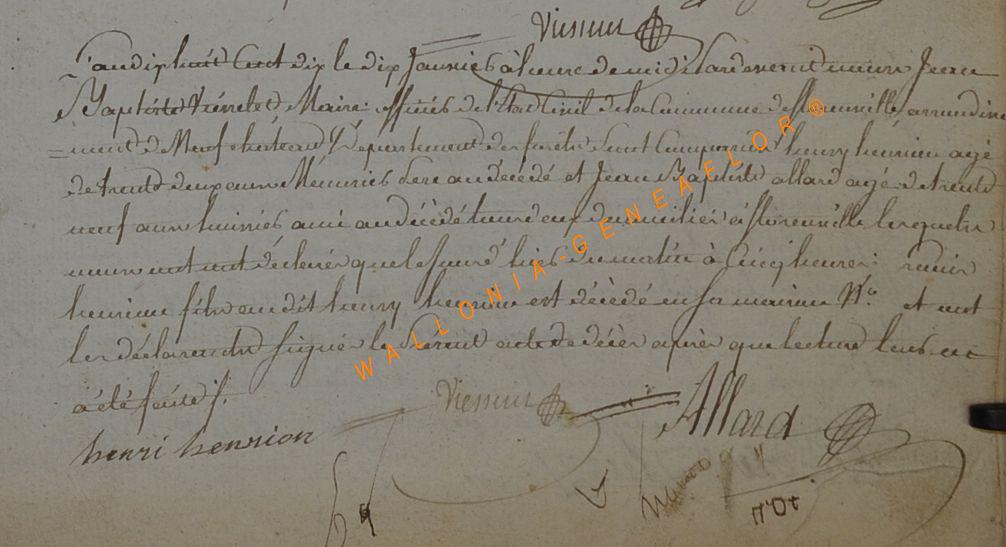 L'an dix huit Cent dix le dix Janvier à heure de midi pardevant nous Jean
Baptiste maire officier de l'Etat Civil de la Commune de florenville arrondisse
=ment de Neufchateau Département des forêts Sont Comparus henry henrion agé
de trente deux ans pere au décédé et Jean Baptiste allard agé de trente
neuf ans ami au décédé tous deux domiciliés à florenville lesquels
nous ont déclaré que le jour d'hier du matin à Cinq heures
henrion fils du dit henry henrion est décédé en sa maison N.° et ont
les déclarants signés le présent acte de décès après que lecture leur en
a été faite
henri henrion
Allard
WALLONIA-GENEAFLOR®